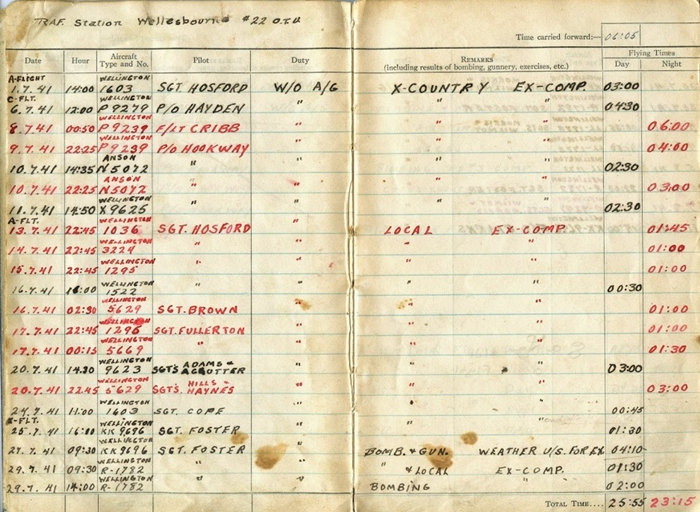 R.A.F. Station Wellesbourne #22 O.T.U
Time carried forward:— 06:05
Date Hour Aircraft Type and No. Pilot Duty REMARKS (Including results of bombing, gunnery, exercises, etc.) Flying Times Day Night
A-FLIGHT WELLINGTON
1.7.41 14:00 1603 SGT HOSFORD W/O A/G X-COUNTRY EX-COMP. 03:00
C-FLT. WELLINGTON
6.7.41 12:00 P9279 P/O HAYDEN " " " 04:30
WELLINGTON
8.7.41 00:50 P9239 F/LT CRIBB " " " 06:00
WELLINGTON
9.7.41 22:25 P9239 P/O HOOKWAY " " " 04:00
ANSON
10.7.41 14:35 N5072 " " " " 02:30
ANSON
10.7.41 22:25 N5072 " " " " 03:00
WELLINGTON
11.7.41 14:50 X9625 " " " " 02:30
A-FLT. WELLINGTON
13.7.41 22:45 1036 SGT. HOSFORD " LOCAL EX-COMP. 01:45
WELLINGTON
14.7.41 22:45 3224 " " " " 01:00
WELLINGTON
15.7.41 22:45 1295 " " " " 01:00
WELLINGTON
16.7.41 1522 " " " " 00:30
WELLINGTON
16.7.41 02:30 5629 SGT. BROWN " " " 01:00
WELLINGTON
17.7.41 22:45 1296 SGT. FULLERTON " " " 01:00
WELLINGTON
17.7.41 00:15 5669 " " " " 01:30
WELLINGTON ADAMS &
20.7.41 14:30 9623 SGT'S " " " 03:00
WELLINGTON HILLS &
20.7.41 22.45 5629 SGT'S HAYNES " " " 03:00
WELLINGTON
24.7.41 11:00 1603 SGT. COPE " " " 00:45
WELLINGTON
25.7.41 16:00 KK9696 SGT. FOSTER " " " 01:30
WELLINGTON
27.7.41 09:30 KK9696 SGT. FOSTER " BOMB. & GUN. WEATHER U/S. FOR EX. 04:10
WELLINGTON
29.7.41 09:30 R-1782 " " " & LOCAL EX-COMP. 01:30
WELLINGTON
29.7.41 14:00 R-1782 " " BOMBING 02:00
TOTAL TIME.... 25:55 23:15